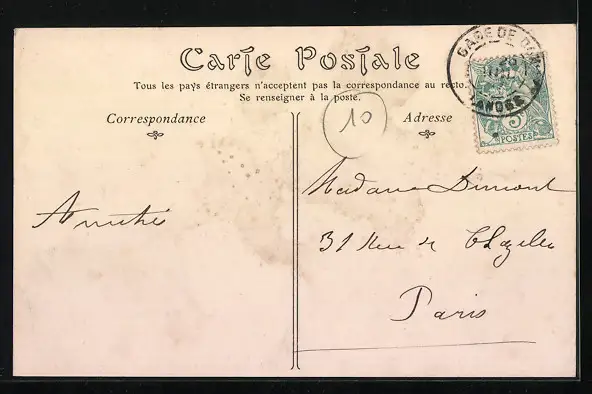 Carte Postale
Tous les pays étrangers n'acceptent pas la correspondance au recto.
Se renseigner à la poste.
Correspondance
Adresse
10
GARE DE
LANDES
5c
POSTES
Amitié
Madame Dumont
31 Rue de
Paris